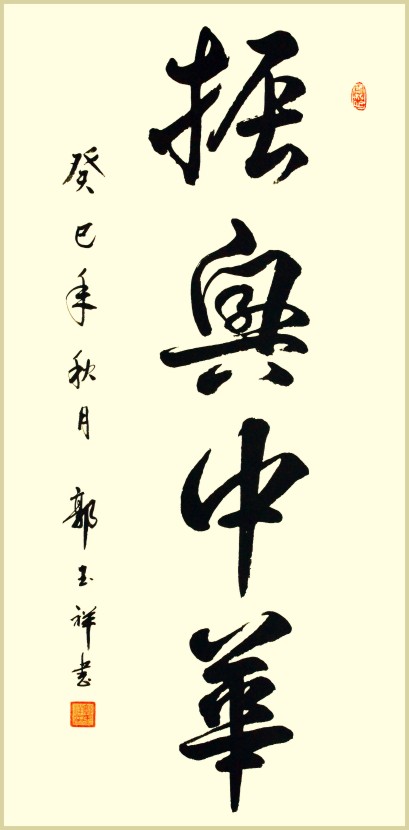 振興中華
癸巳年秋月 郭玉祥書